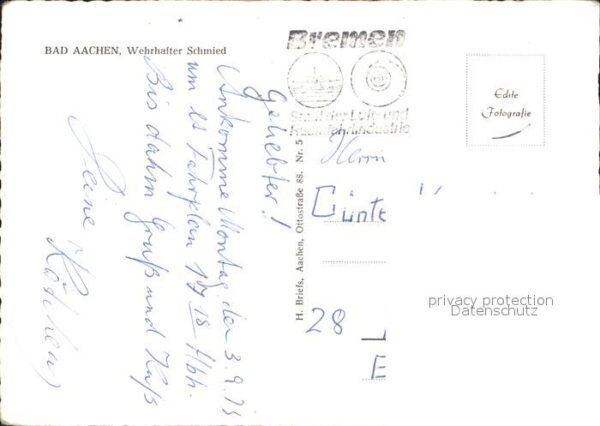 BAD AACHEN, Wehrhafter Schmied
Bremen
Stadt der Luft- und
Raumfahrtindustrie
Echte
Fotografie
H. Briefs, Aachen, Ottostraße 88. Nr. 5
Geliebter!
Ankomme Montag den 3.9.73
um lt Fahrplan 17 18 Hbh.
Bis dahin Gruß und Kuß
Deine
Herrn
Günte
28
privacy protection
Datenschutz